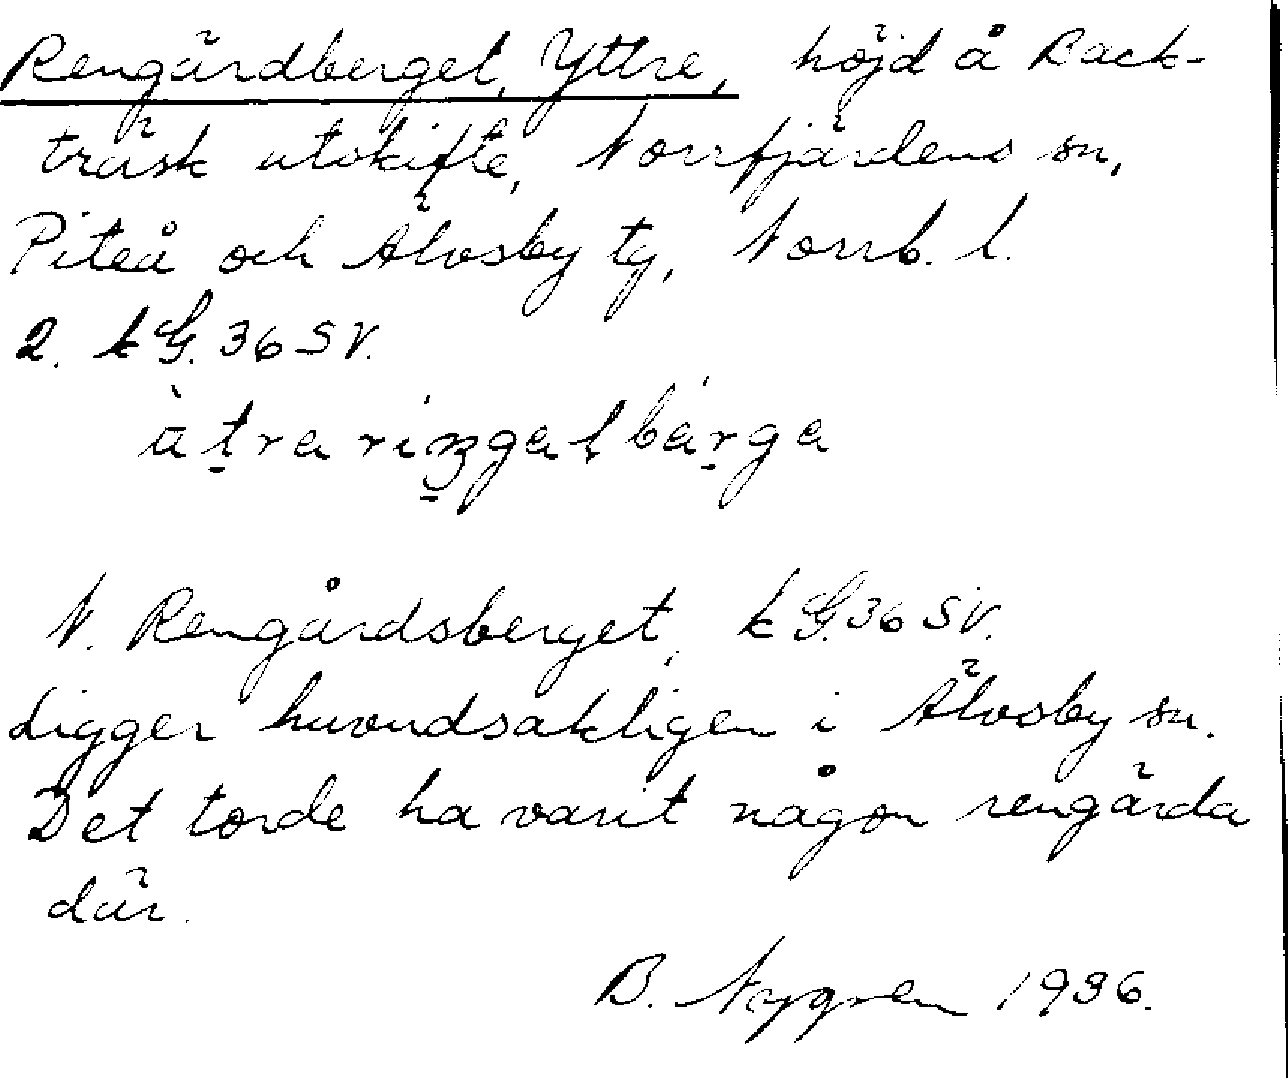 Rengärdberget, Yttre, höjd å Back-
träsk utskifte, Norrfjärdens sn,
Piteå och Älvsby tg, Norrb. l.
2. kG. 36 SV.
N. Rengårdsberget, kG. 36 SV.
Ligger huvudsakligen i Älvsby sn.
Det torde ha varit någon rengärda
där.
B. Nygren 1936.